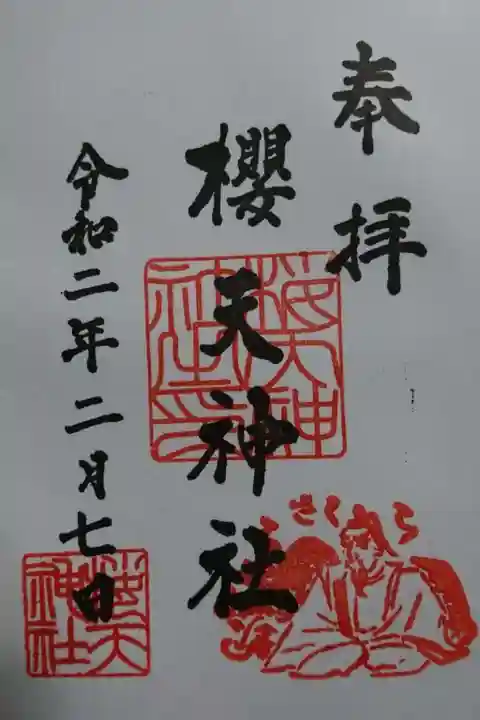 奉拝
櫻天神社
令和二年二月七日
桜天神社印
さくら
桜天神社